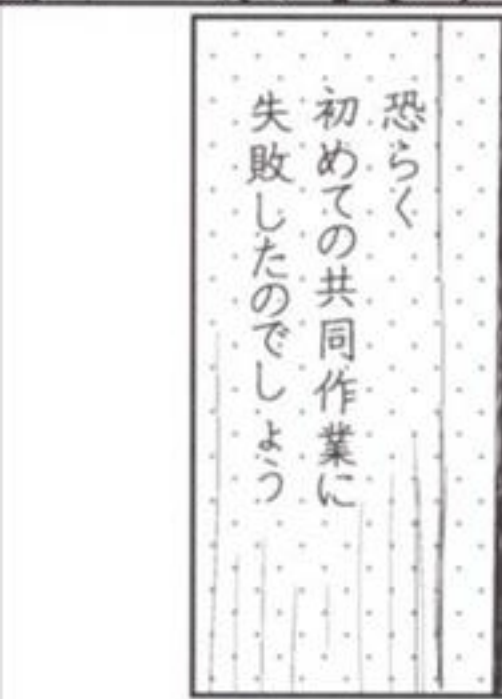 恐らく
初めての共同作業に
失敗したのでしょう